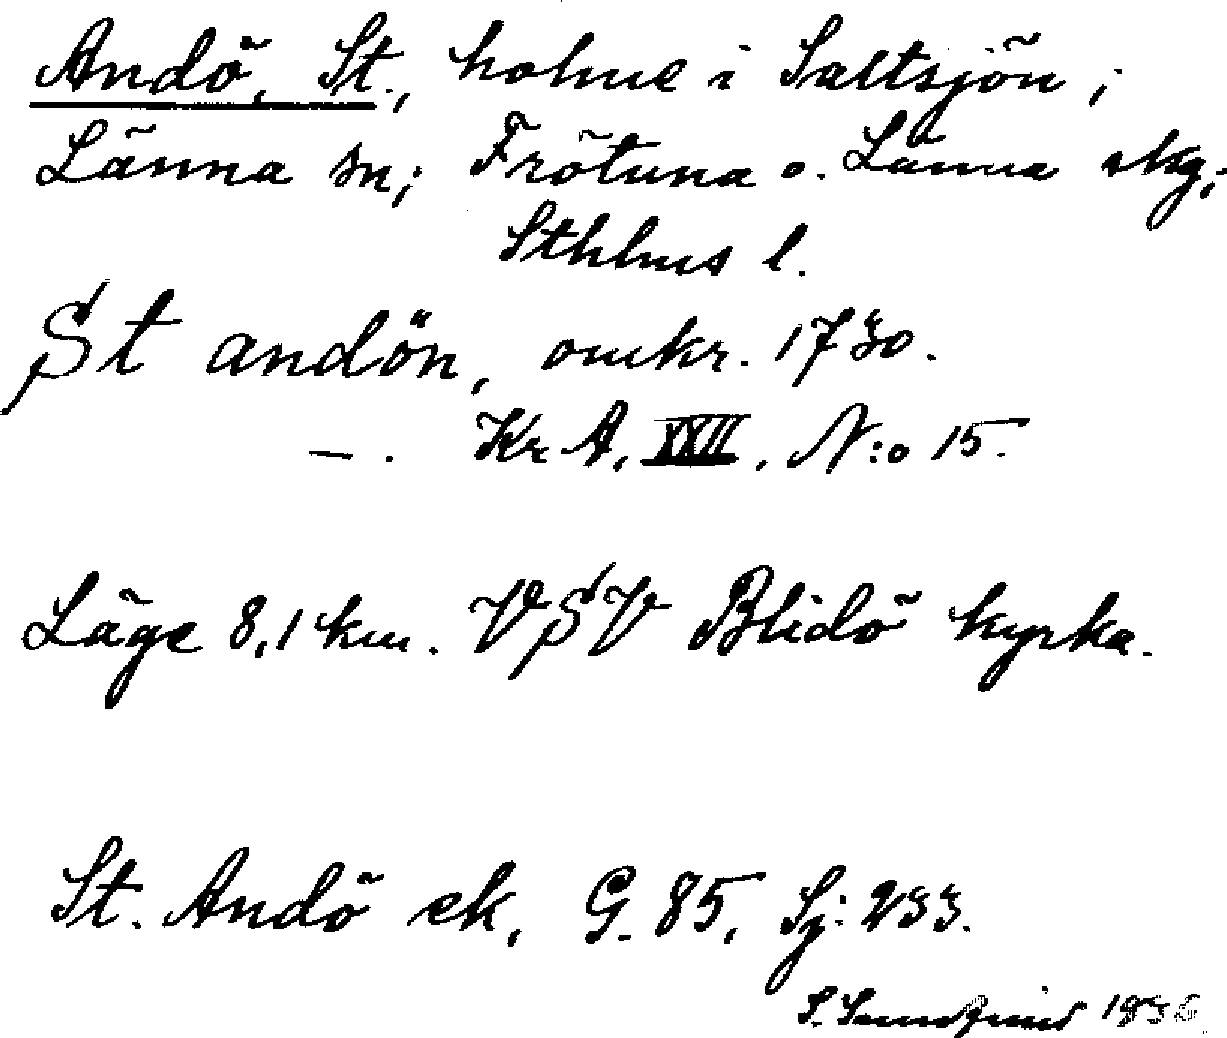 Andö, St., holme i Saltsjön;
Länna sn; Frötuna o. Länna skg;
Sthlms l.
St andön, omkr. 1730.
— . Kr A, XXII, N:o 15.
Läge 8,1 km. VSV Blidö kyrka.
St. Andö ek, G. 85, Sj: 233.
S. Sundqvist 1936